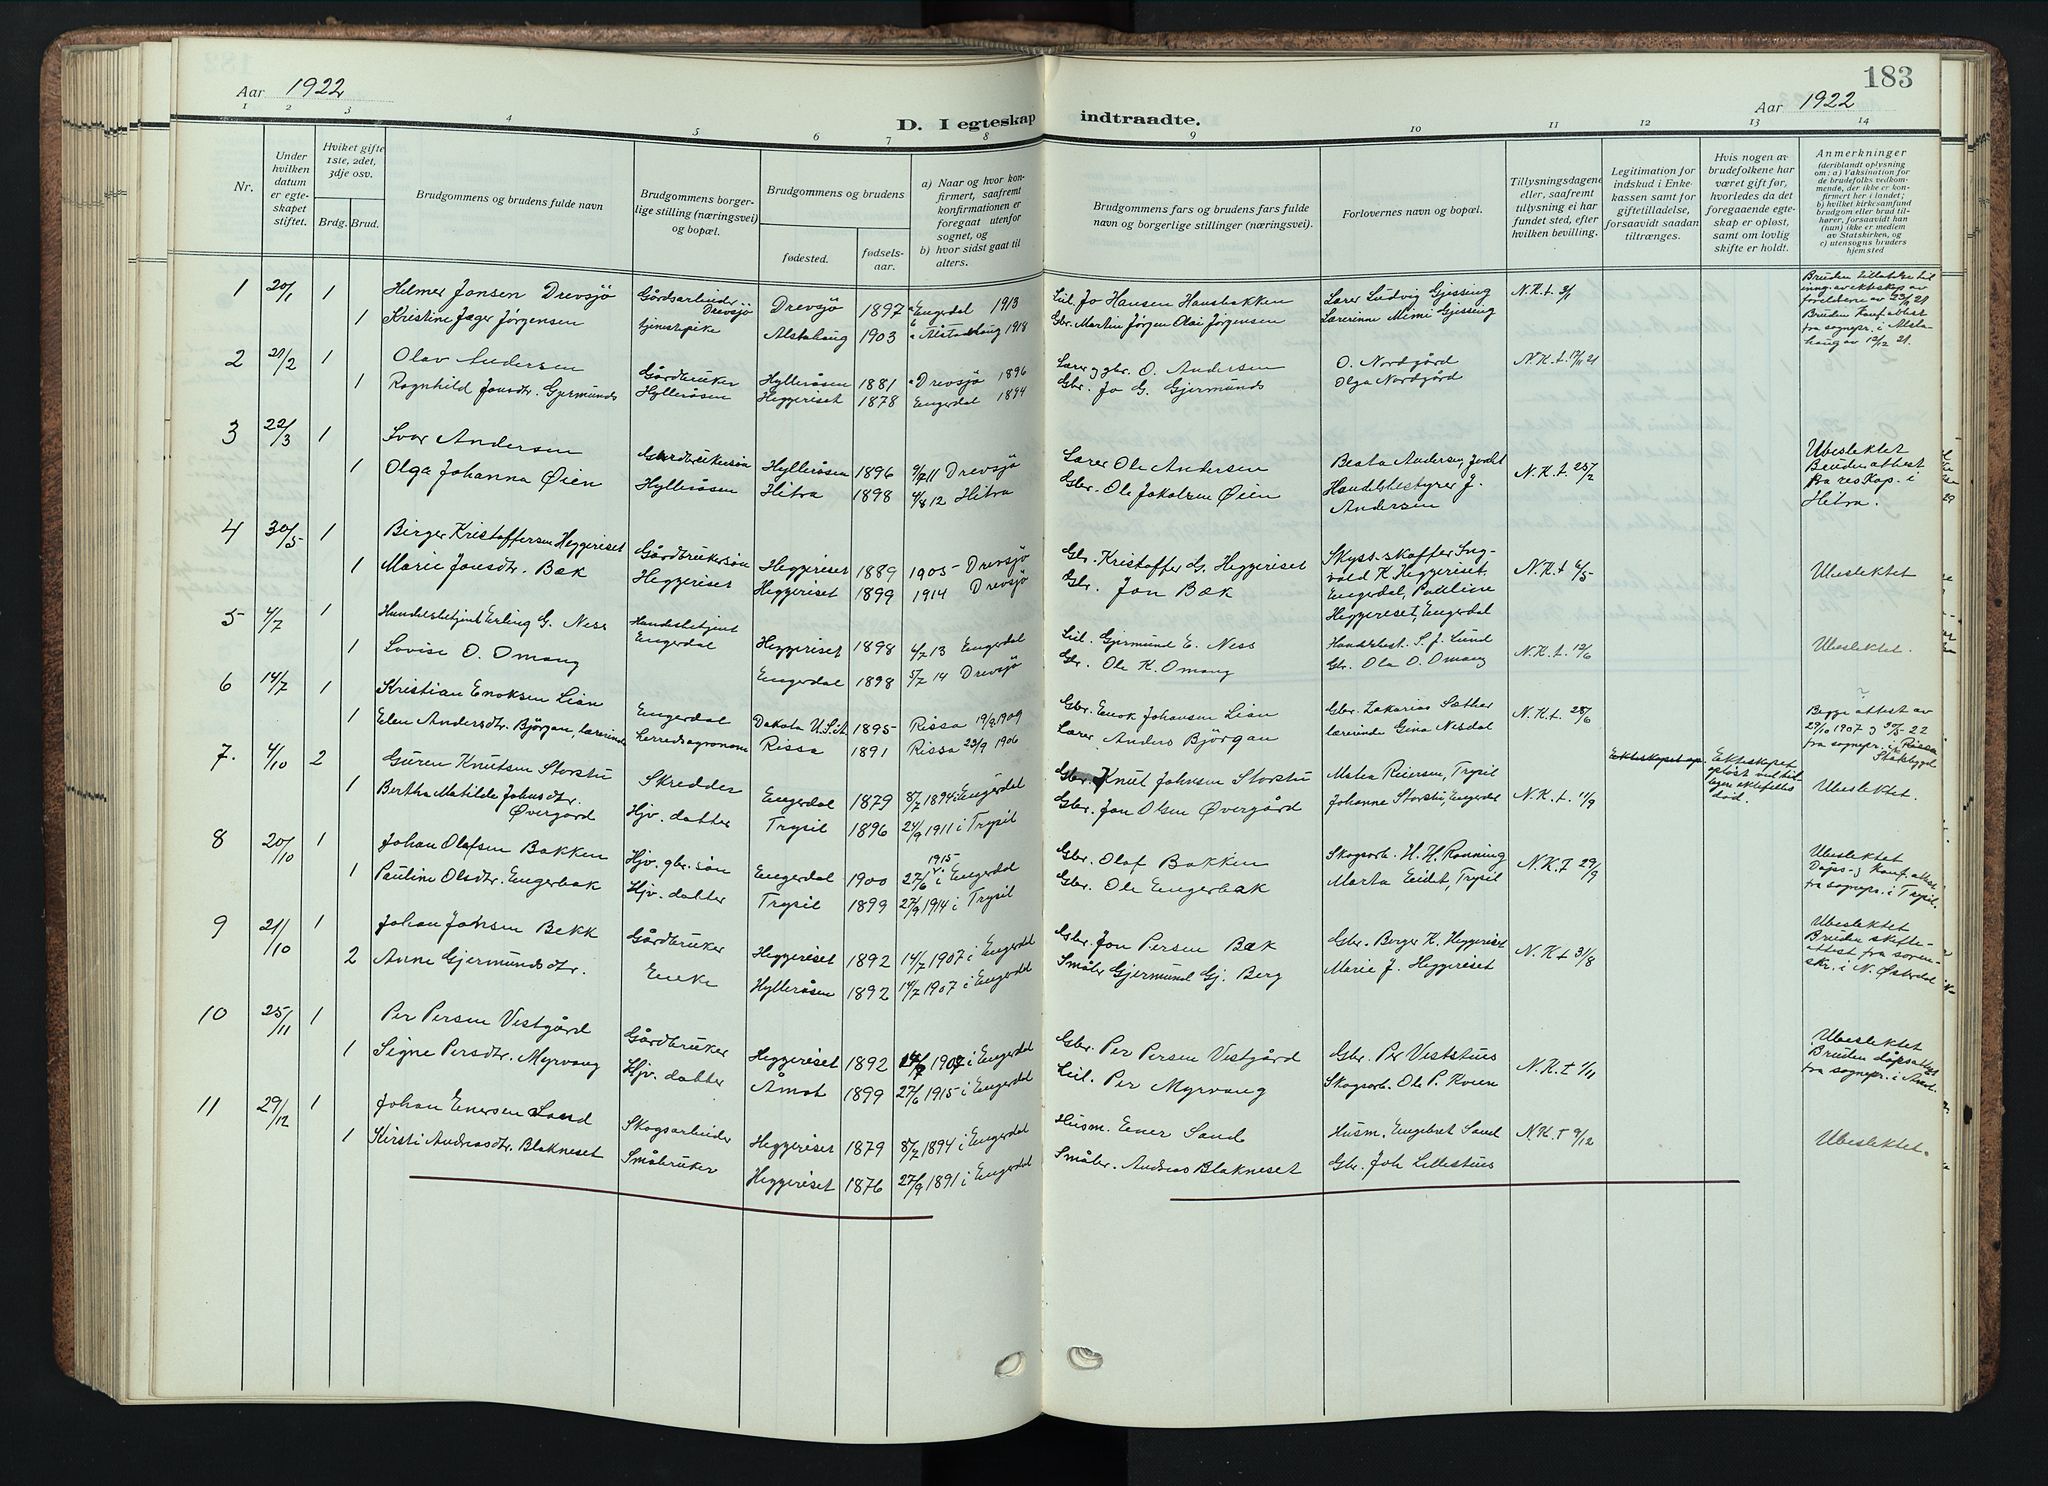 183
Aar 1922
Aar 1922
D. I egteskap indtraadte.
1 2 3 4 5 6 7 8 9 10 11 12 13 14
Nr.
Under hvilken datum er egteskapet stiftet.
Hviket gifte 1ste, 2det, 3dje osv.
Brdg. Brud.
Brudgommens og brudens fulde navn
Brudgommens borgerlige stilling (næringsvei) og bopæl.
Brudgommens og brudens
fødested.
fødsels-aar.
a) Naar og hvor konfirmert, saafremt konfirmationen er foregaat utenfor sognet, og
b) hvor sidst gaat til alters.
Brudgommens fars og brudens fars fulde navn og borgerlige stillinger (næringsvei).
Forlovernes navn og bopæl.
Tillysningsdagene eller, saafremt tillysning ei har fundet sted, efter hvilken bevilling.
Legitimation for indskud i Enkekassen samt for giftetilladelse, forsaavidt saadan tiltrænges.
Hvis nogen av brudefolkene har været gift før, hvorledes da det foregaaende egteskap er opløst, samt om lovlig skifte er holdt.
Anmerkninger
(deriblandt oplysning om: a) Vaksination for de brudefolks vedkommende, der ikke er konfirmert her i landet; b) hvilket kirkesamfund brudgom eller brud tilhører, forsaavidt han (hun) ikke er medlem av Statskirken, og c) utensogns bruders hjemsted
1 20/1 1 Helmer Jonsen Drevsjö Gårdsarbeider Drevsjö Drevsjö 1897 a Engerdal 1913 Lil. Jo Hansen Hansbakken Lærer Ludvig Gjessing N.K.t. 3/1 Bruden tillatelse til inng. av ekteskap av foreldrene av 23/11 21. Bruden konf. attest fra sognepr. i Alstahaug av 12/12 21.
1 Kristine Jæger Jörgensen tjenestepike Alstahaug 1903 a Alstadhaug 1918 Gbr. Martin Jörgen Olai Jörgensen Lærerinne Mimi Gjessing
2 21/2 1 Olav Andersen Gårdbruker Hylleråsen Hylleråsen 1881 a Drevsjö 1896 Lærer og gbr. O. Andersen O. Nordgård N.K.t. 17/11 21
1 Ragnhild Jonsdtr. Gjermunds Heggeriset 1878 Engerdal 1894 Gbr. Jo G. Gjermunds Olga Nordgård
3 22/3 1 Ivar Andersen Gårdbrukersön Hylleråsen Hylleråsen 1896 9/7 11 Drevsjö Lærer Ole Andersen Beata Andersen, Jordet N.K.t. 25/2 Ubeslektet Bruden attest fra res. kap. i Hitra.
1 Olga Johanna Øien Hitra 1898 4/8 12 Hitra Gbr. Ole Jakobsen Øien Handelsbestyrer J. Andersen
4 30/5 1 Birger Kristoffersen Heggeriset Gårdbrukersön Heggeriset Heggeriset 1889 1905 Drevsjö Gbr. Kristoffer G. Heggeriset Skyss-skaffer Ingvald K. Heggeriset, Engerdal, Pauline Heggeriset, Engerdal N.K.t 6/5 Ubeslektet
1 Marie Jonsdtr. Bæk Heggeriset 1899 1914 Drevsjö Gbr. Jon Bæk
5 4/7 1 Handelsbetjent Erling G. Ness Handelsbetjent Engerdal Heggeriset 1898 6/7 13 Engerdal Lil. Gjermund E. Ness Handelsbest. S. J. Lund N.K.t. 12/6 Ubeslektet.
1 Lovise O. Omang Engerdal 1898 5/7 14 Drevsjö Gbr. Ole K. Omang Gbr. Ola O. Omang
6 14/7 1 Kristian Enoksen Lian Engerdal Herredsagronom Dakota U.S.A 1895 Rissa 19/9 1909 Gbr. Enok Johansen Lian Gbr. Zakarias Sæther N.K.t. 28/6 Begge attest av 29/10 1907 og 30/5 22 fra sognepr. i Rissa Stadsbygd
1 Elen Andersdtr. Björgan, lærerinde Rissa 1891 Rissa 23/9 1906 Lærer Anders Björgan lærerinde Gina Nesdal
7. 4/10 2 Guren Knutsen Storstu Skredder Engerdal 1879 8/7 1894 i Engerdal Gbr. Knut Johnsen Storstu Matea Reiersen, Trysil N.K.t. 11/9 Ekteskapet op. Ekteskapet opløst ved tidligere ektefelles död. Ubeslektet.
1 Bertha Matilde Johnsdtr. Øvergård Hjv. datter Trysil 1896 24/9 1911 i Trysil Gbr. Jon Olsen Øvergård Johanne Storstu Engerdal
8 20/10 1 Johan Olafsen Bakken Hjv. gbr. sön Engerdal 1900 27/6 1915 i Engerdal Gbr. Olaf Bakken Skogsarb. H. H. Rönning N.K.T 29/9 Ubeslektet Dåps- og konf. attest fra sognepr. i Trysil.
1 Pauline Olsdtr. Engerbak Hjv. datter Trysil 1899 27/9 1914 i Trysil Gbr. Ole Engerbak Marta Eidet, Trysil
9 21/10 1 Johan Jonsen Bekk Gårdbruker Heggeriset 1892 14/7 1907 i Engerdal Gbr. Jon Persen Bæk Gbr. Berger K. Heggeriset N.K.t 31/8 Ubeslektet Bruden skifteattest fra sorenskr. i N. Østerdal
2 Anne Gjermundsdtr. Enke Hylleråsen 1892 14/7 1907 i Engerdal Småbr Gjermund Gj. Berg Marie J. Heggeriset
10 25/11 1 Per Persen Vestgård Gårdbruker Heggeriset 1892 14/7 1907 i Engerdal Gbr. Per Persen Vestgård Gbr. Per Veststuus N.K.t 1/11 Ubeslektet Bruden dåpsattest fra sognepr. i Åmot.
1 Signe Persdtr. Myrvang Hjv. datter Åmot 1899 27/6 1915 i Engerdal Lil. Per Myrvang Skogsarb. Ole P. Kvien
11 29/12 1 Johan Enersen Sand Skogsarbeider Heggeriset 1879 8/7 1894 i Engerdal Husm. Ener Sand Husm. Engebret Sand N.K.T 9/12 Ubeslektet.
1 Kirsti Andreasdtr. Blakneset Småbruker Heggeriset 1876 27/9 1891 i Engerdal Småbr. Andreas Blakneset Gbr. Joh Lillestuus